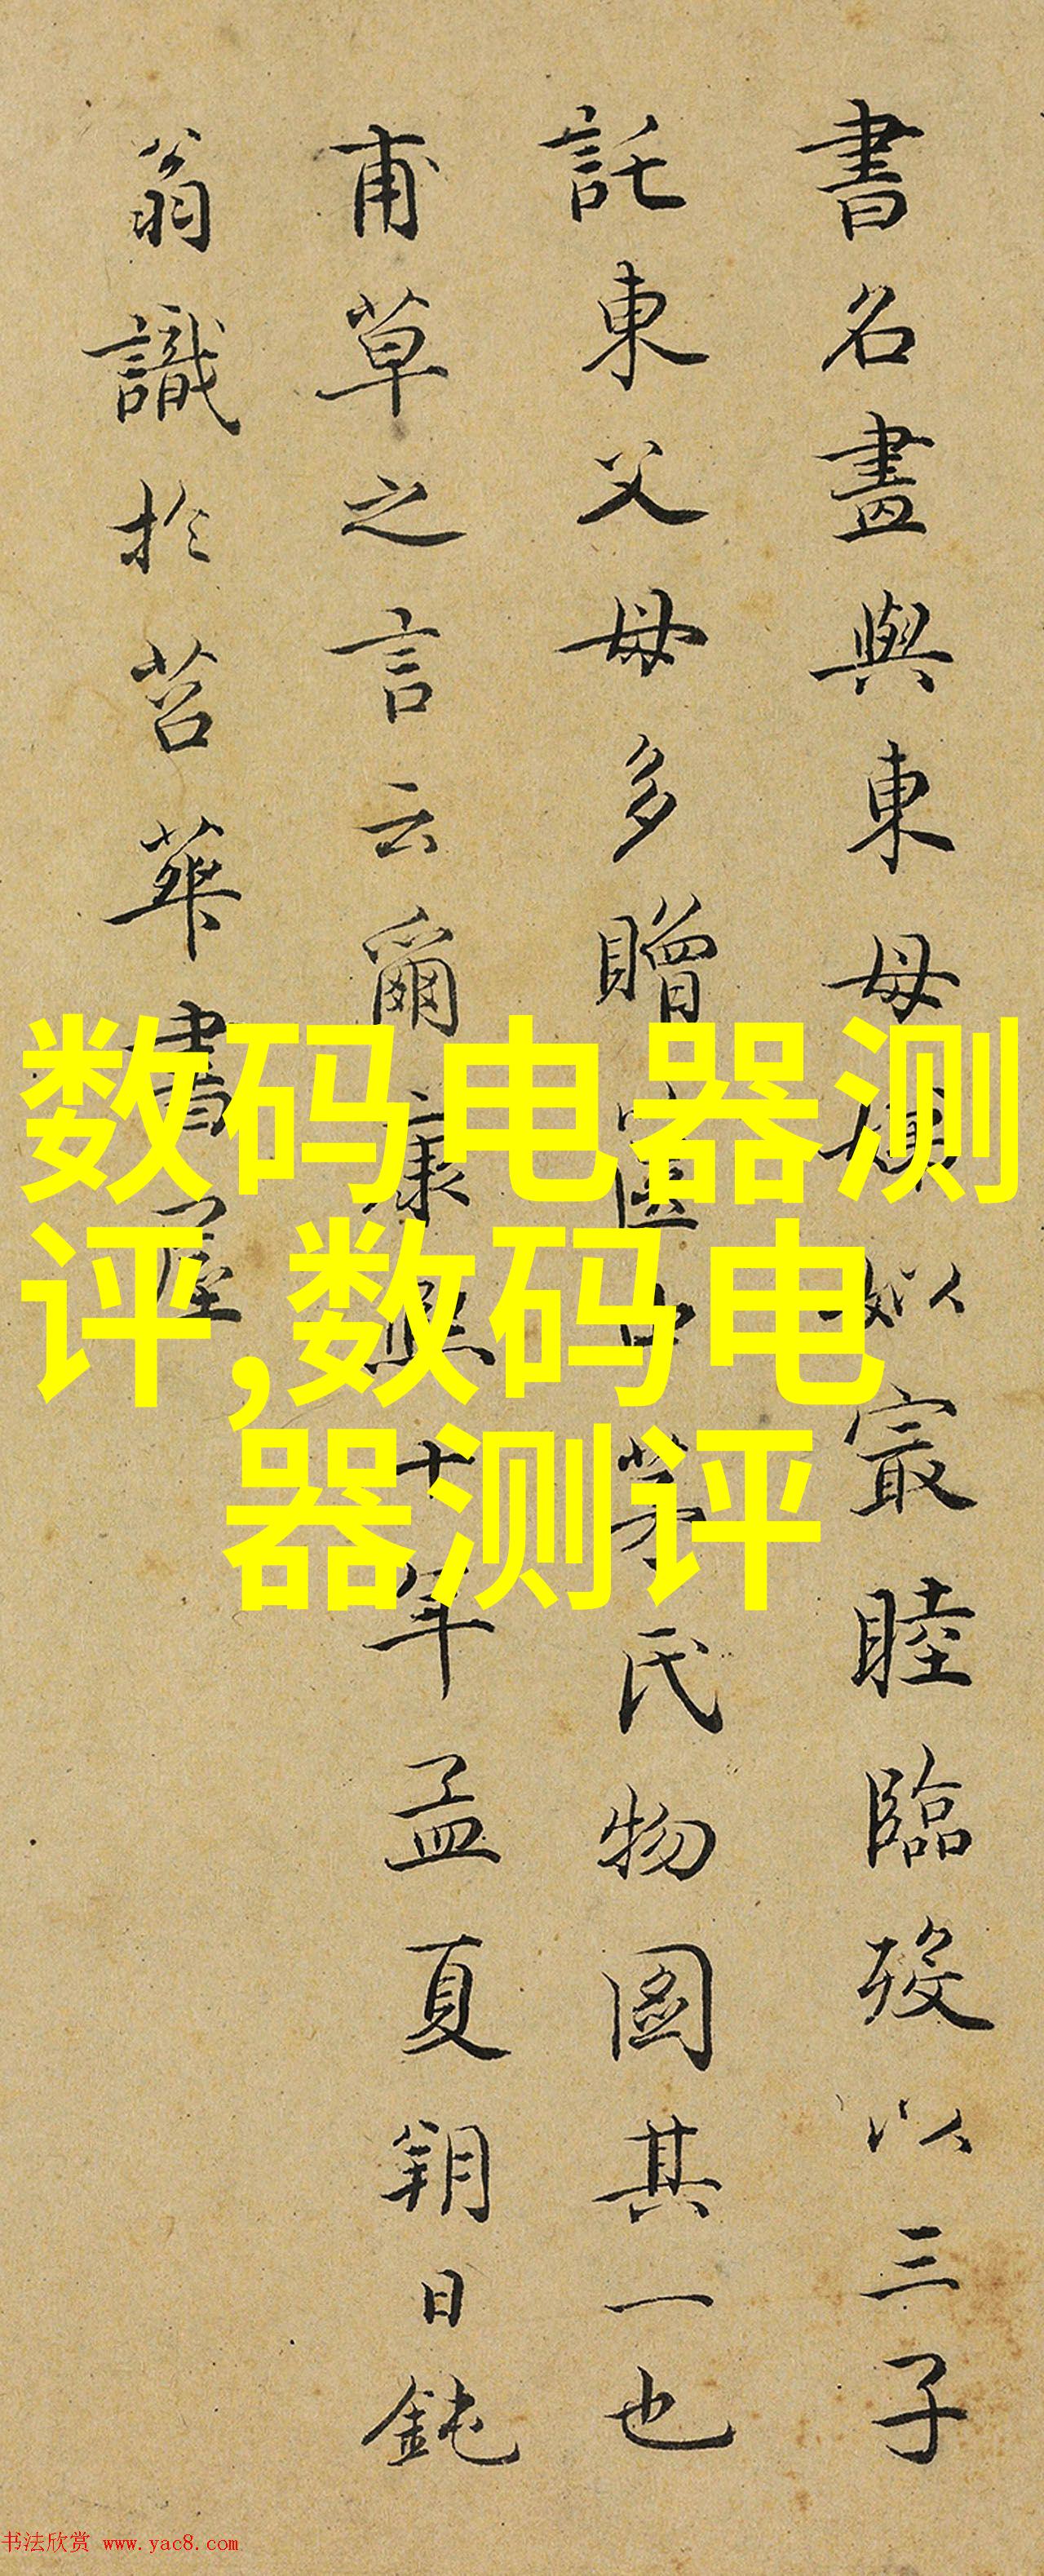 書名畫與東母嫂姒寂睦臨歿以三子
託東父母多贈匡中茅氏物圖其一也
甫草之言云爾康熙十年孟夏朔日鈍
翁識於苕華書屋
数码电器测
评,数码电
器测评
书法欣赏 www.yac8.com